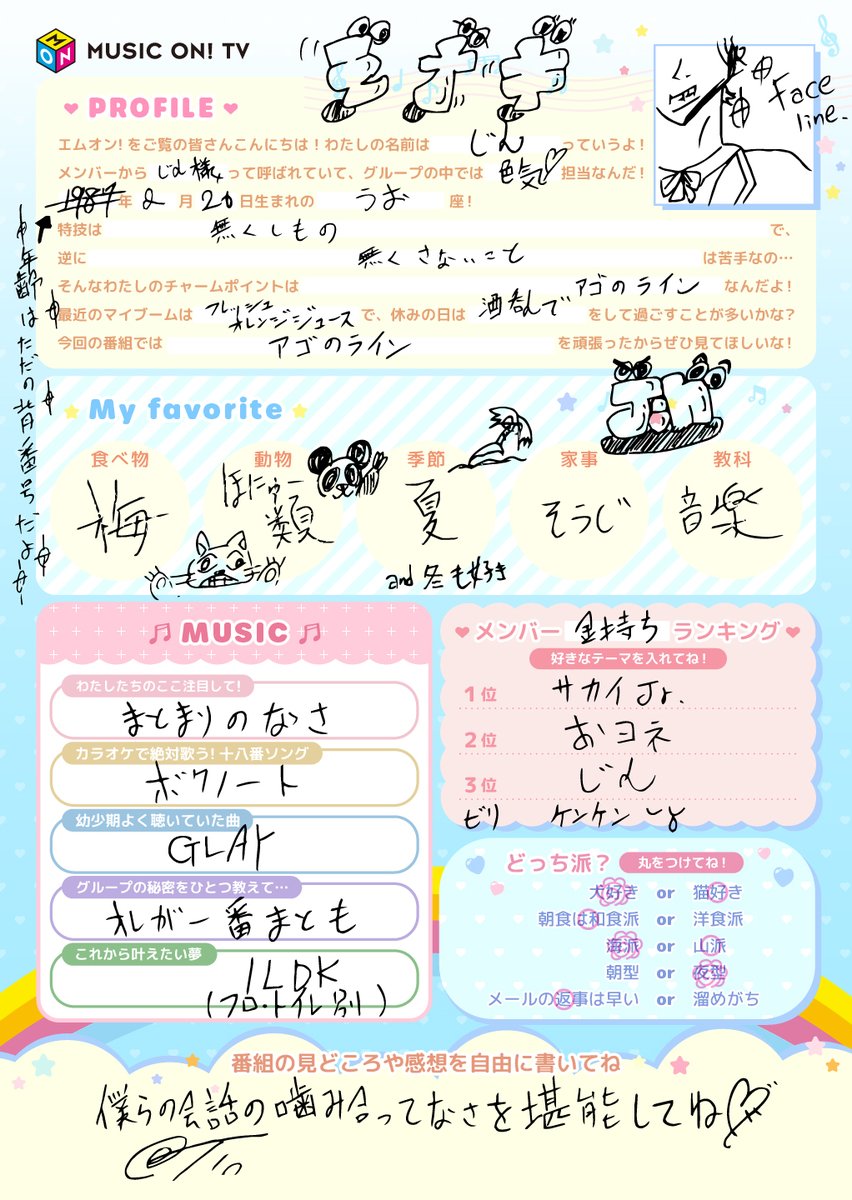 MON MUSIC ON! TV
Face
line.
PROFILE
エムオン!をご覧の皆さんこんにちは!わたしの名前は じん っていうよ!
メンバーから じん様 って呼ばれていて、グループの中では 色気♡ 担当なんだ!
1987年 2 月 20 日生まれの うお 座!
特技は 無くしもの で、
逆に 無くさないこと は苦手なの…
そんなわたしのチャームポイントは アゴのライン なんだよ!
最近のマイブームは フレッシュオレンジジュース で、休みの日は 酒呑んで をして過ごすことが多いかな?
今回の番組では アゴのライン を頑張ったからぜひ見てほしいな!
年齢はただの背番号だよ
My favorite
食べ物 動物 季節 家事 教科
梅 ほにゅー類 夏 そうじ 音楽
and 冬も好き
MUSIC
わたしたちのここ注目して!
まとまりのなさ
カラオケで絶対歌う!十八番ソング
ボクノート
幼少期よく聴いていた曲
GLAY
グループの秘密をひとつ教えて…
オレが一番まとも
これから叶えたい夢
1LDK
(フロ・トイレ別)
メンバー 金持ち ランキング
好きなテーマを入れてね!
1位 サカイJr.
2位 おヨネ
3位 じん
ビリ ケンケン
どっち派? 丸をつけてね!
犬好き or 猫好き
朝食は和食派 or 洋食派
海派 or 山派
朝型 or 夜型
メールの返事は早い or 溜めがち
番組の見どころや感想を自由に書いてね
僕らの会話の噛み合ってなさを堪能してね♡